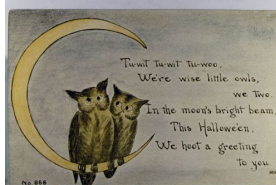 Tu-wit tu-wit tu-woo,
We're wise little owls,
we two.
In the moon's bright beam,
This Hallowe'en,
We hoot a greeting
to you.
No 868